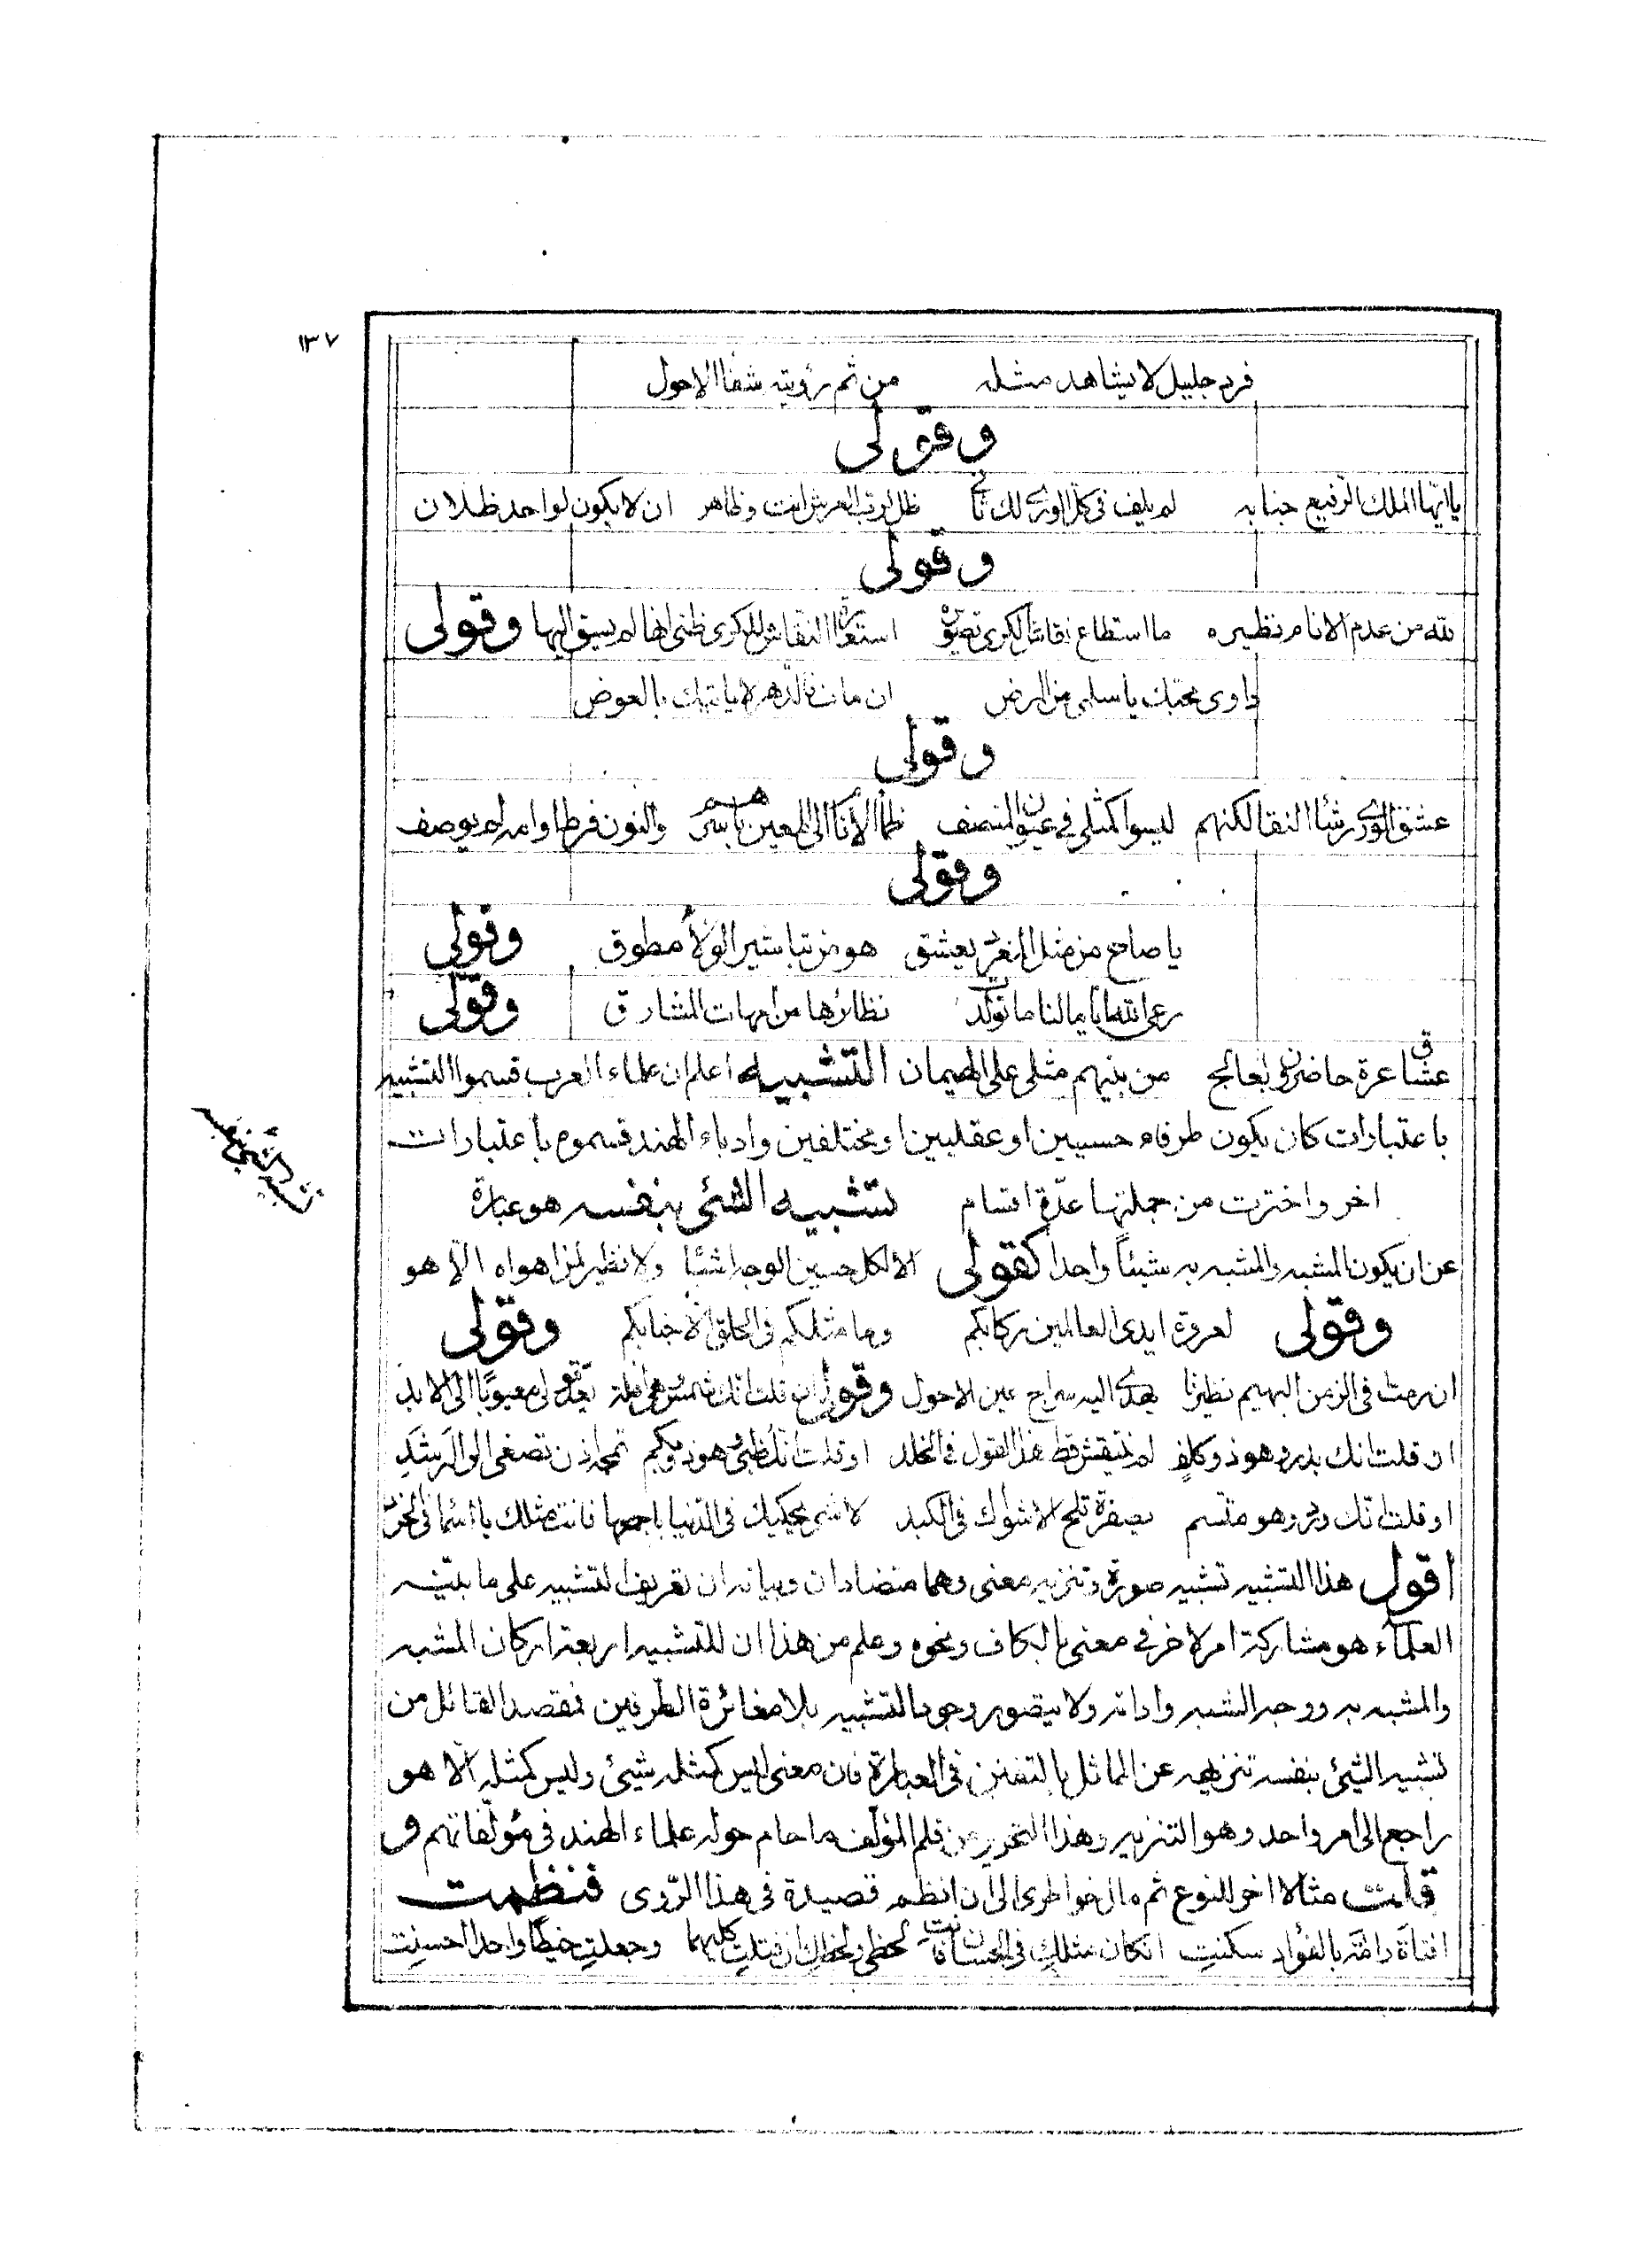 ١٣٧
فرد جليل لا يشاهد مثله من ثم رؤيته شفا الاحول
وقولى
يا ايها الملك الرفيع جنابه لم يلف فى كل الورى لك ثان ظل لرب العرش انت وظاهر ان لا يكون لواحد ظلان
وقولى
لله من عدم الانام نظيره ما استطاع نقاش الكرى تصويره استعارة النقاش للكرى ظنى انها لم يسبق اليها وقولى
داوى محبك يا سلمى من المرض ان مات فالدهر لا ياتيك بالعوض
وقولى
عشق الورى رشأ النقا لكنهم ليسوا كمثلى فى عيون المنصف ظمأ الأنام الى المعين باسرهم والنون فرط اوامه لا يوصف
وقولى
يا صاح من مثل المغرد يعشق هو من تباشير الولاء مطوق وقولى
رعى الله اياما لنا ما تولدت نظائرها من امهات المشارق وقولى
عشاق عرة حاضرون بعالج من بينهم مثلى على الهيمان التشبيه اعلم ان علماء العرب قسموا التشبيه
باعتبارات كان يكون طرفاه حسيين او عقليين او مختلفين وادباء الهند قسموه باعتبارات
اخر واخترت من جملتها عدّة اقسام تشبيه الشئ بنفسه هو عبارة
عن ان يكون المشبه والمشبه به شيئاً واحدا كقولى الا لكل حسين الوجه اشباه ولا نظير لمن اهواه الّا هو
وقولى لعروة ايدى العالمين ركابكم وما مثلكم فى الخلق الا جنابكم وقولى
ان رمت فى الزمن البهيم نظيرنا يهدى اليه سراج عين الاحول وقولى ان قلت انك شمس هى افلة تعدو معيوبًا الى الابد
ان قلت انك بدر وهو ذو كلف لم ينتقش قط هذا القول فى الخلد او قلت انك ظبى هو ذو بكم تمجه اذن تصغى الى الرشد
او قلت انك ورد وهو مبتسم بصفرة تلج الاشواك فى الكبد لا شئ يحكيك فى الدنيا باجمعها فانت مثلك يا
اقول هذا التشبيه تشبيه صورة وتنزيه معنى وهما متضادان وبيانه ان تعريف التشبيه على ما بيّنه
العلمآء هو مشاركة امر لاخر فى معنى بالكاف ونحوه وعلم من هذا ان للتشبيه اربعة اركان المشبه
والمشبه به ووجه الشبه واداته ولا يتصور وجود التشبيه بلا مغائرة الطرفين فقصد القائل من
تشبيه الشئ بنفسه تنزيهه عن المماثل بالتفنن فى العبارة فان معنى ليس كمثله شيئ وليس كمثله الّا هو
راجع الى امر واحد وهو التنزيه وهذا التحرير من قلم المؤلف ما حام حوله علماء الهند فى مؤلفاتهم و
قلت مثالا اخر للنوع ثم مال خواطرى الى ان انظم قصيدة فى هذا الرّوى فنظمت
افتاة رامة بالفؤاد سكنتِ ان كان مثلك فى الحسان فانتِ لحظى ولحظك ان قبلتِ كليهما وجعلتِ خيطا واحدا احسنتِ
تشبيه الشئ بنفسه